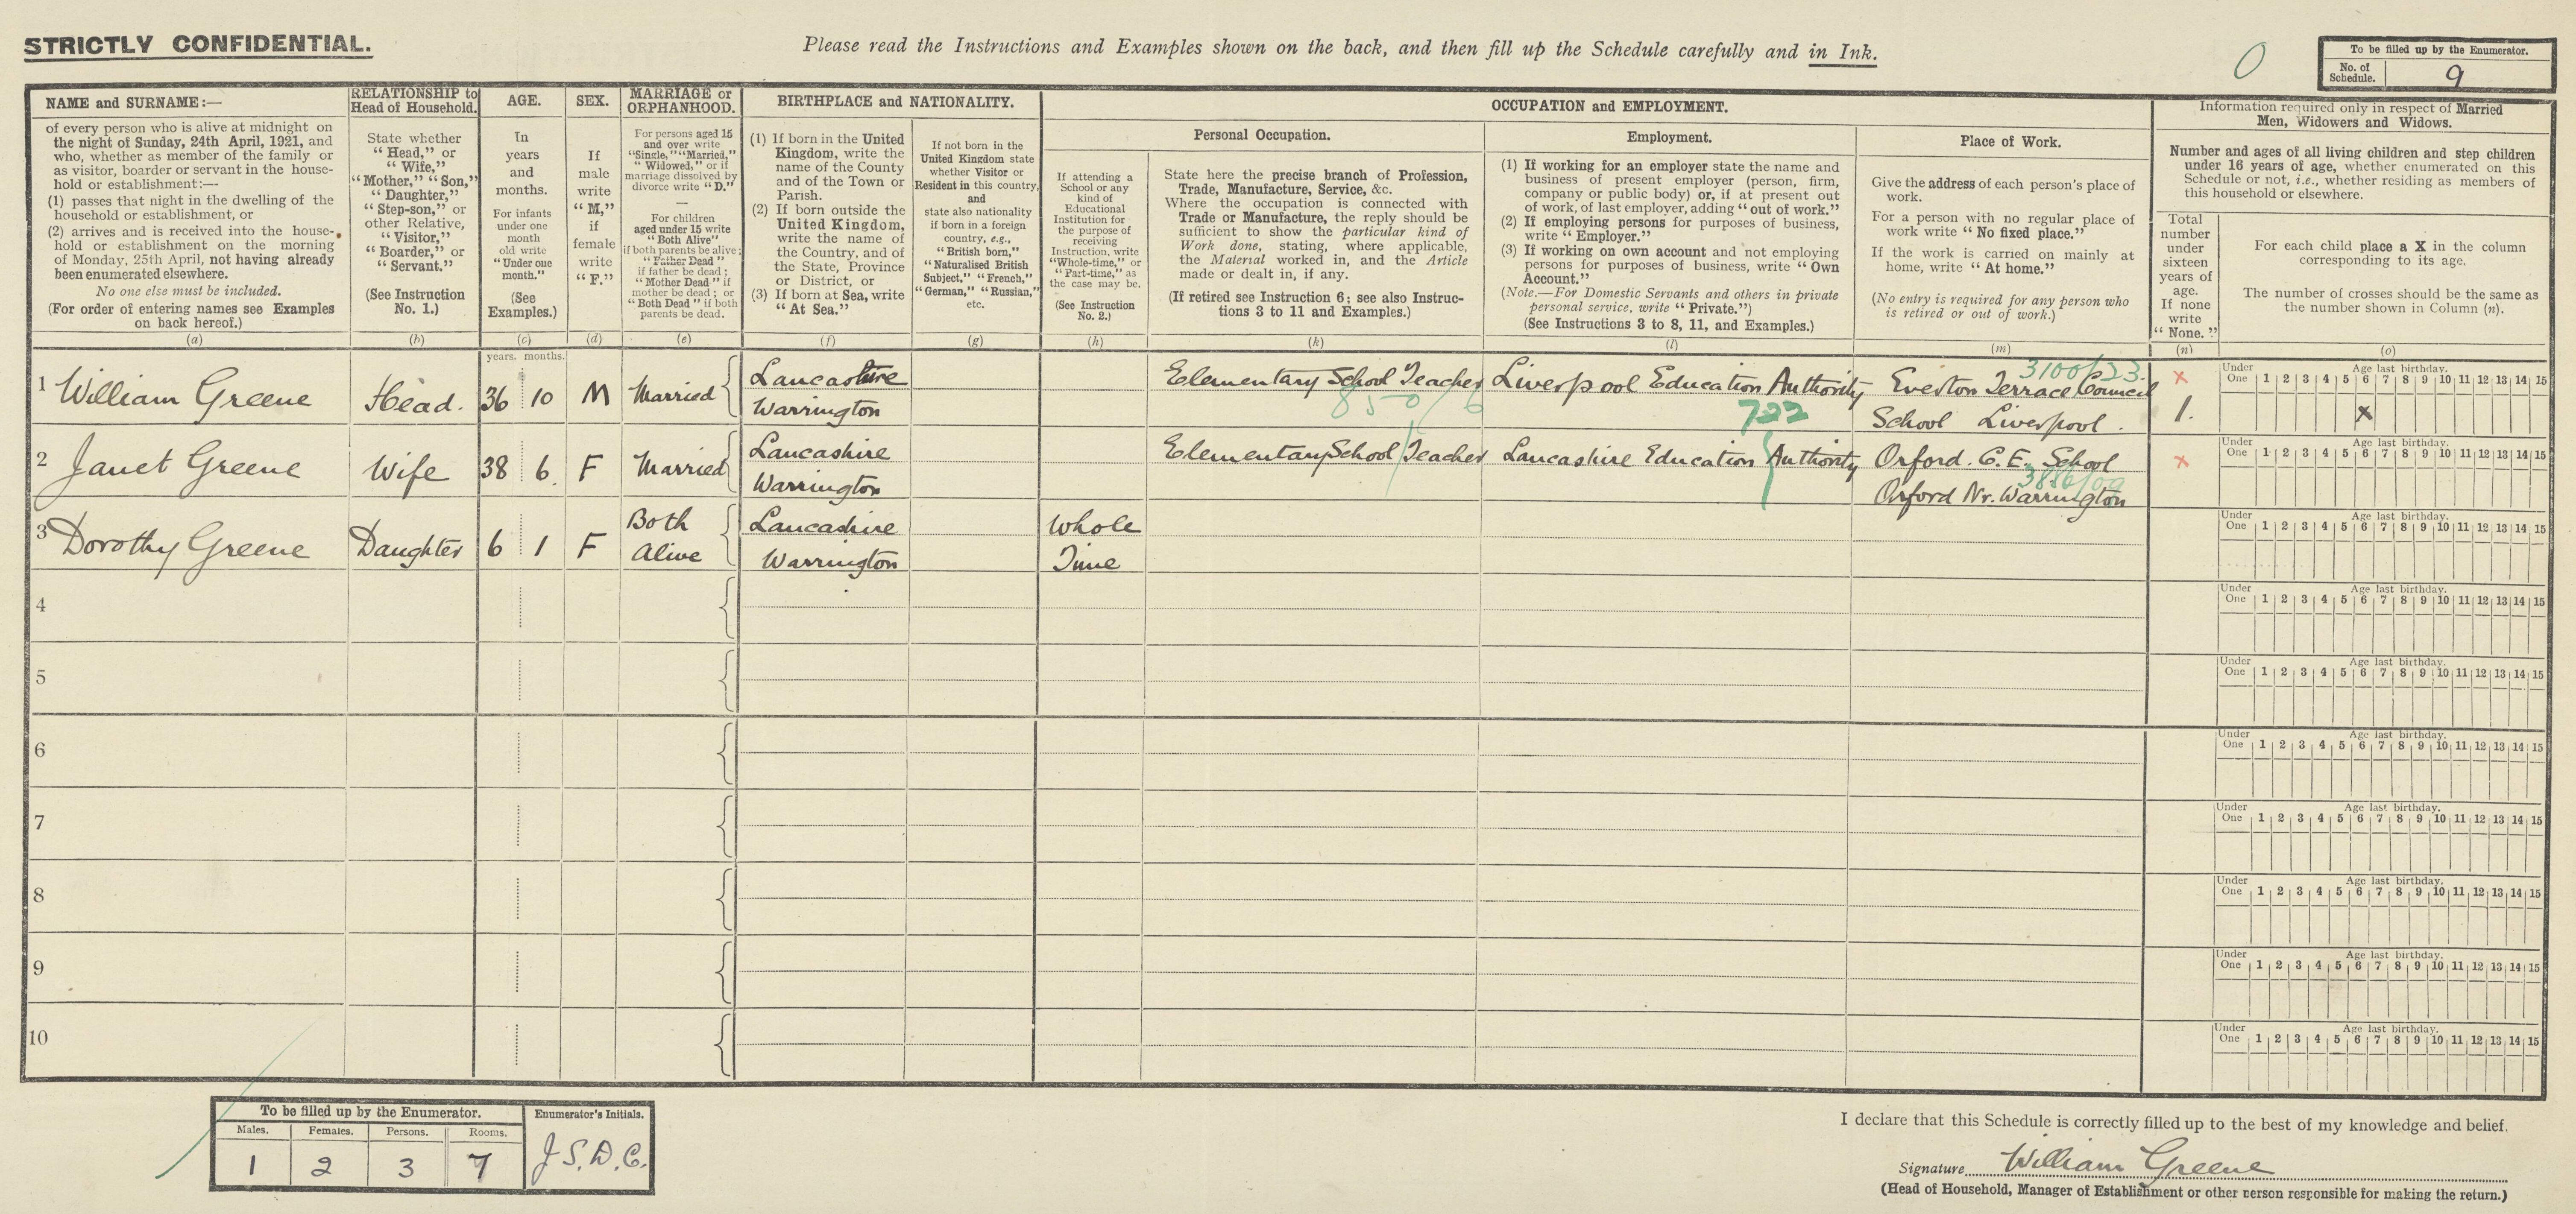 STRICTLY CONFIDENTIAL.
Please read the Instructions and Examples shown on the back, and then fill up the Schedule carefully and in Ink.
0
To be filled up by the Enumerator.
No. of Schedule.
9
NAME and SURNAME:—
of every person who is alive at midnight on
the night of Sunday, 24th April, 1921, and
who, whether as member of the family or
as visitor, boarder or servant in the house-
hold or establishment:—
(1) passes that night in the dwelling of the
household or establishment, or
(2) arrives and is received into the house-
hold or establishment on the morning
of Monday, 25th April, not having already
been enumerated elsewhere.
No one else must be included.
(For order of entering names see Examples
on back hereof.)
(a)
RELATIONSHIP to
Head of Household.
State whether
“Head,” or
“Wife,”
“Mother,” “Son,”
“Daughter,”
“Step-son,” or
other Relative,
“Visitor,”
“Boarder,” or
“Servant.”
(See Instruction
No. 1.)
(b)
AGE.
In
years
and
months.
For infants
under one
month
old write
“Under one
month.”
(See
Examples.)
(c)
SEX.
If
male
write
“M,”
if
female
write
“F.”
(d)
MARRIAGE or
ORPHANHOOD.
For persons aged 15
and over write
“Single,” “Married,”
“Widowed,” or if
marriage dissolved by
divorce write “D.”
—
For children
aged under 15 write
“Both Alive”
if both parents be alive;
“Father Dead”
if father be dead;
“Mother Dead” if
mother be dead; or
“Both Dead” if both
parents be dead.
(e)
BIRTHPLACE and NATIONALITY.
(1) If born in the United
Kingdom, write the
name of the County
and of the Town or
Parish.
(2) If born outside the
United Kingdom,
write the name of
the Country, and of
the State, Province
or District, or
(3) If born at Sea, write
“At Sea.”
(f)
If not born in the
United Kingdom state
whether Visitor or
Resident in this country,
and
state also nationality
if born in a foreign
country, e.g.,
“British born,”
“Naturalised British
Subject,” “French,”
“German,” “Russian,”
etc.
(g)
OCCUPATION and EMPLOYMENT.
If attending a
School or any
kind of
Educational
Institution for
the purpose of
receiving
Instruction, write
“Whole-time,” or
“Part-time,” as
the case may be.
(See Instruction
No. 2.)
(h)
Personal Occupation.
State here the precise branch of Profession,
Trade, Manufacture, Service, &c.
Where the occupation is connected with
Trade or Manufacture, the reply should be
sufficient to show the particular kind of
Work done, stating, where applicable,
the Material worked in, and the Article
made or dealt in, if any.
(If retired see Instruction 6; see also Instruc-
tions 3 to 11 and Examples.)
(k)
Employment.
(1) If working for an employer state the name and
business of present employer (person, firm,
company or public body) or, if at present out
of work, of last employer, adding “out of work.”
(2) If employing persons for purposes of business,
write “Employer.”
(3) If working on own account and not employing
persons for purposes of business, write “Own
Account.”
(Note.—For Domestic Servants and others in private
personal service, write “Private.”)
(See Instructions 3 to 8, 11, and Examples.)
(l)
Place of Work.
Give the address of each person’s place of
work.
For a person with no regular place of
work write “No fixed place.”
If the work is carried on mainly at
home, write “At home.”
(No entry is required for any person who
is retired or out of work.)
(m)
Information required only in respect of Married
Men, Widowers and Widows.
Number and ages of all living children and step children
under 16 years of age, whether enumerated on this
Schedule or not, i.e., whether residing as members of
this household or elsewhere.
Total
number
under
sixteen
years of
age.
If none
write
“None.”
(n)
For each child place a X in the column
corresponding to its age.
The number of crosses should be the same as
the number shown in Column (n).
(o)
years. months.
1 William Greene Head. 36 10 M Married Lancashire Warrington Elementary School Teacher 850/6 Liverpool Education Authority 722 Everton Terrace Council School Liverpool. 3100/23. x 1.
Under One 1 2 3 4 5 6 7 8 9 10 11 12 13 14 15
Age last birthday.
x
2 Janet Greene Wife 38 6. F Married Lancashire Warrington Elementary School Teacher Lancashire Education Authority Orford. C.E. School Orford Nr. Warrington x
Under One 1 2 3 4 5 6 7 8 9 10 11 12 13 14 15
Age last birthday.
3 Dorothy Greene Daughter 6 1 F Both Alive Lancashire Warrington Whole Time
Under One 1 2 3 4 5 6 7 8 9 10 11 12 13 14 15
Age last birthday.
4
Under One 1 2 3 4 5 6 7 8 9 10 11 12 13 14 15
Age last birthday.
5
Under One 1 2 3 4 5 6 7 8 9 10 11 12 13 14 15
Age last birthday.
6
Under One 1 2 3 4 5 6 7 8 9 10 11 12 13 14 15
Age last birthday.
7
Under One 1 2 3 4 5 6 7 8 9 10 11 12 13 14 15
Age last birthday.
8
Under One 1 2 3 4 5 6 7 8 9 10 11 12 13 14 15
Age last birthday.
9
Under One 1 2 3 4 5 6 7 8 9 10 11 12 13 14 15
Age last birthday.
10
Under One 1 2 3 4 5 6 7 8 9 10 11 12 13 14 15
Age last birthday.
To be filled up by the Enumerator.
Males. Females. Persons. Rooms.
1 2 3 7
Enumerator’s Initials.
J.S.D.C.
I declare that this Schedule is correctly filled up to the best of my knowledge and belief.
Signature William Greene
(Head of Household, Manager of Establishment or other person responsible for making the return.)